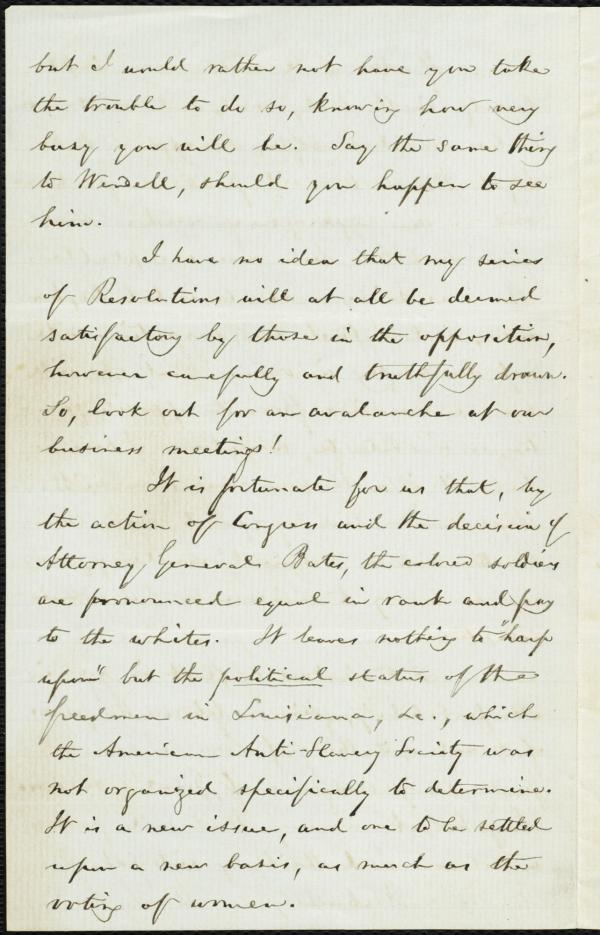 but I would rather not have you take
the trouble to do so, knowing how very
busy you will be. Say the same thing
to Wendell, should you happen to see
him.
I have no idea that my series
of Resolutions will at all be deemed
satisfactory by those in the opposition,
however carefully and truthfully drawn.
So, look out for an avalanche at our
business meetings!
It is fortunate for us that, by
the action of Congress and the decision of
Attorney General Bates, the colored soldiers
are pronounced equal in rank and pay
to the whites. It leaves nothing to "harp
upon" but the political status of the
freedmen in Louisiana, &c., which
the American Anti-Slavery Society was
not organized specifically to determine.
It is a new issue, and one to be settled
upon a new basis, as much as the
voting of women.